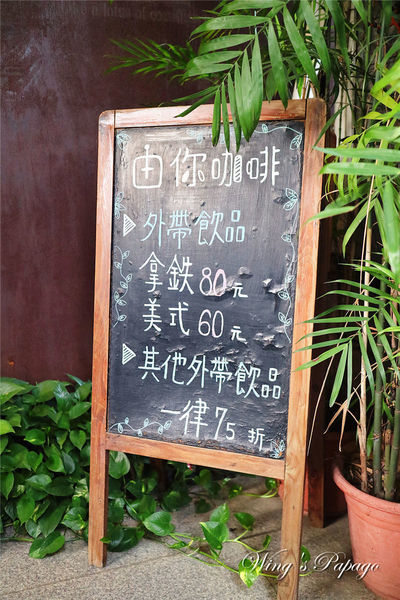 由你咖啡
外帶飲品
拿鉄80元
美式60元
其他外帶飲品
一律75折
Wing's Papago